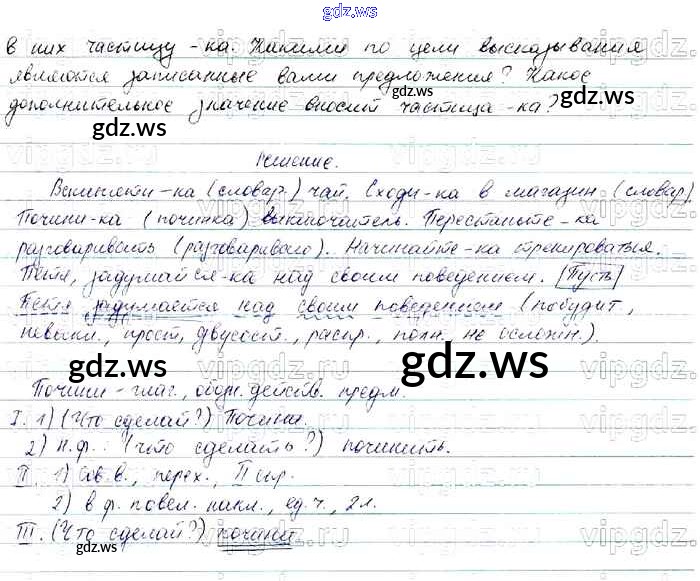 gdz.ws
в них частицу -ка. Какими по цели высказывания
являются записанные вами предложения? Какое
gdz.ws
дополнительное значение вносит частица -ка?
gdz.ws gdz.ws
Решение.
Вскипяти-ка (словар.) чай. Сходи-ка в магазин. (словар)
Почини-ка (починка) выключатель. Перестаньте-ка
разговаривать (разговаривала). Начинайте-ка тренироваться.
Петя, задумайся-ка над своим поведением. Пусть
Петя задумается над своим поведением (побудит,
невоскл., прост, двусост., распр., полн. не осложн.).
gdz.ws gdz.ws
Почини - глаг., обозн. действ. предм.
I. 1) (Что сделай?) Почини.
2) н.ф.: (что сделать?) починить.
II. 1) сов.в., перех., II спр.
2) в ф. повел. накл., ед.ч., 2 л.
III. (Что сделай?) почини
gdz.ws gdz.ws